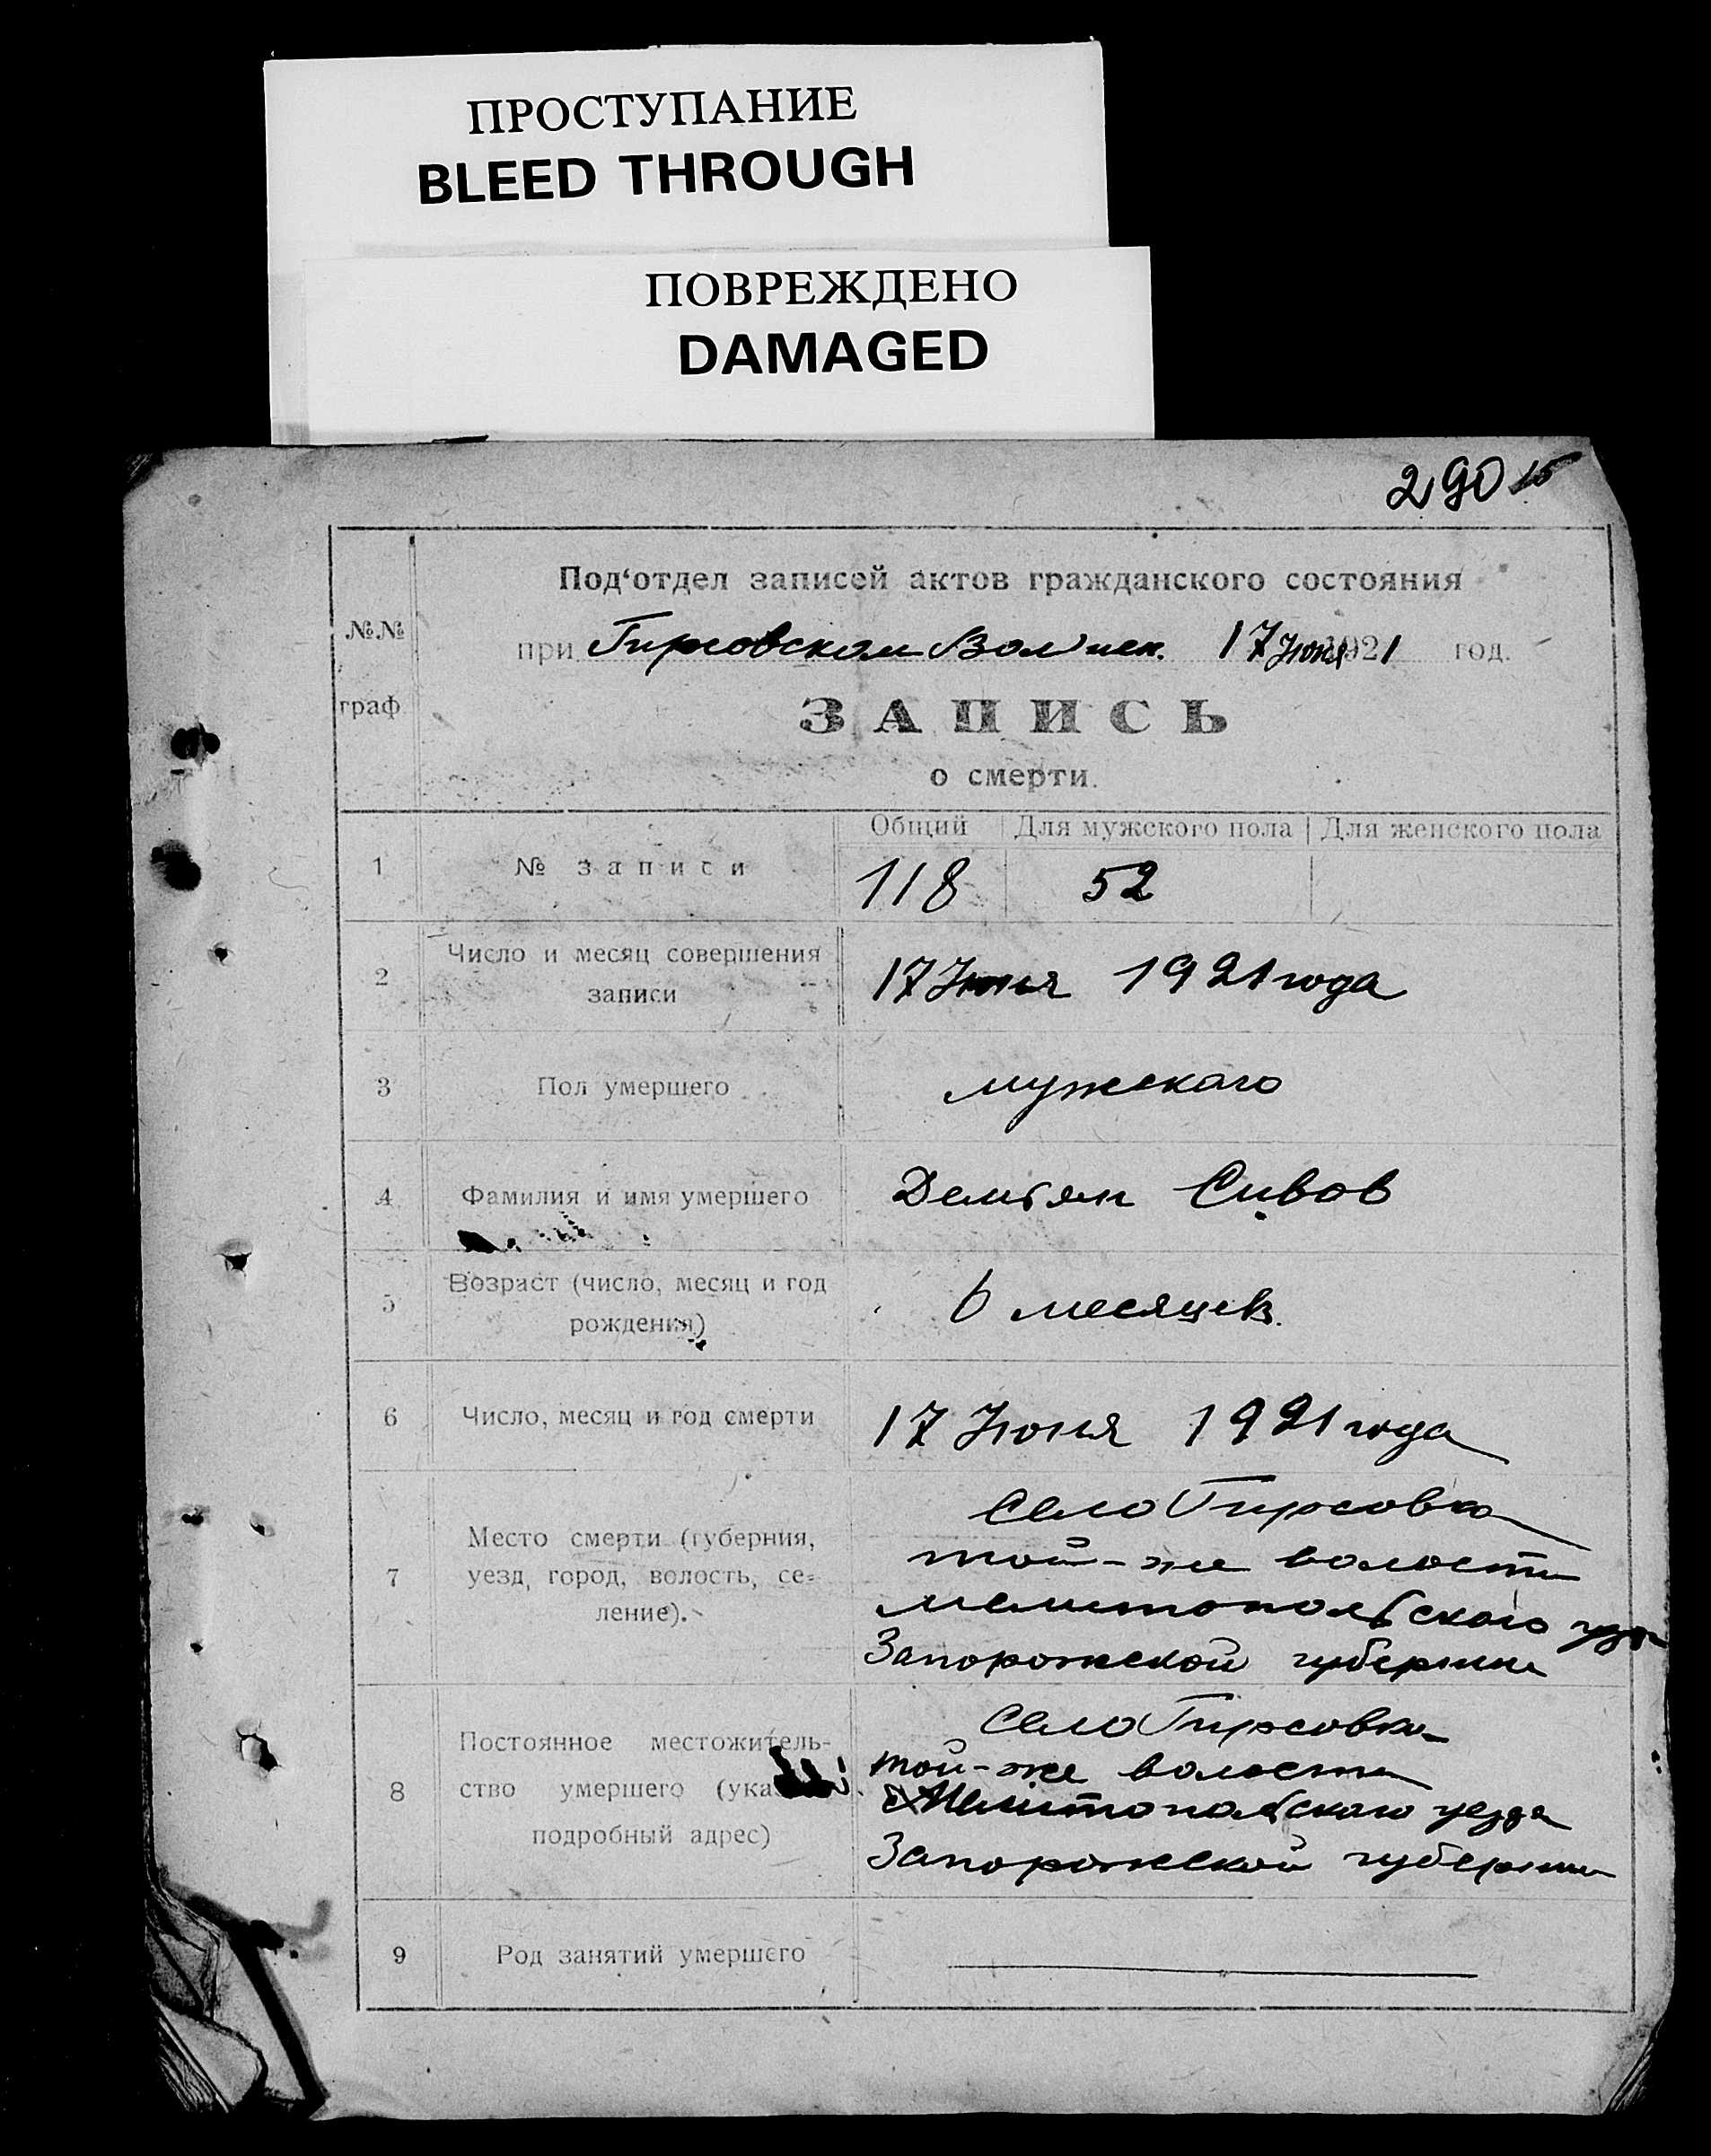 ПРОСТУПАНИЕ
BLEED THROUGH
ПОВРЕЖДЕНО
DAMAGED
290 15
Под‘отдел записей актов гражданского состояния
№№
при Гирсовском Вол иск. 17 Июня 1921 год.
граф
ЗАПИСЬ
о смерти.
Общий Для мужского пола Для женского пола
1 № записи 118 52
2 Число и месяц совершения
записи 17 Июня 1921 года
3 Пол умершего мужскаго
4 Фамилия и имя умершего Демьян Сивов
5 Возраст (число, месяц и год
рождения) 6 месяцев.
6 Число, месяц и год смерти 17 Июня 1921 года
Село Гирсовка
7 Место смерти (губерния, той-же волости
уезд, город, волость, се-
ление). Мелитопольскаго
Запорожской губернии
Село Гирсовка
8 Постоянное местожитель- той-же волости
ство умершего (ука Мелитопольскаго уезда
подробный адрес) Запорожской губернии
9 Род занятий умершего